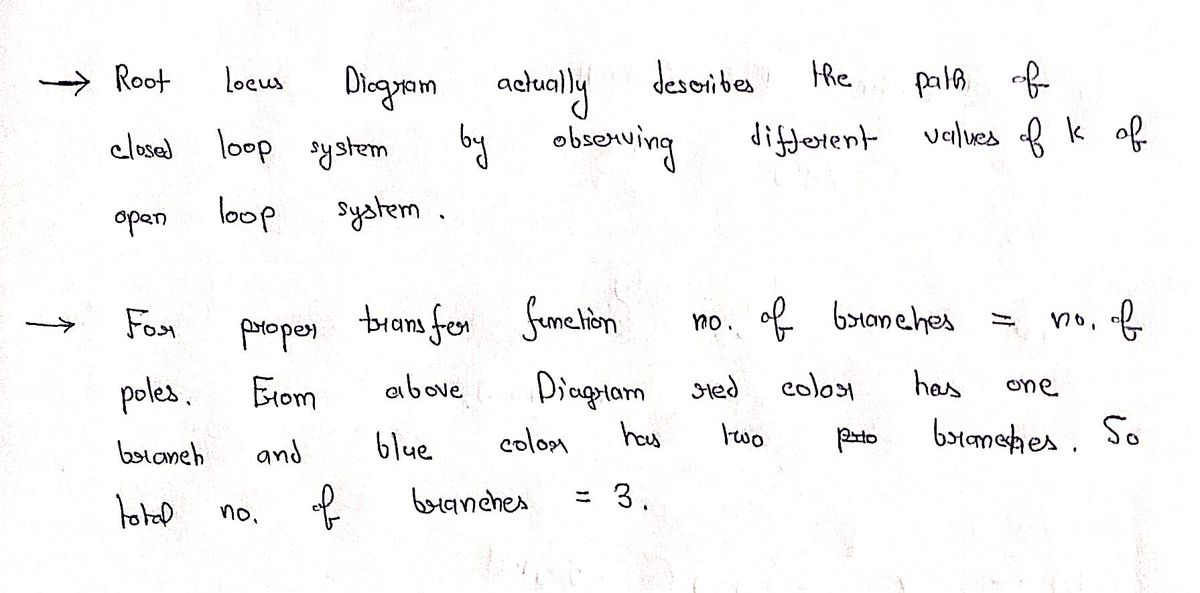 → Root locus Diagram actually describes the path of
closed loop system by observing different values of k of
open loop system.
→ For proper transfer function no. of branches = no. of
poles. From above Diagram red color has one
branch and blue color has two branches. So
total no. of branches = 3.